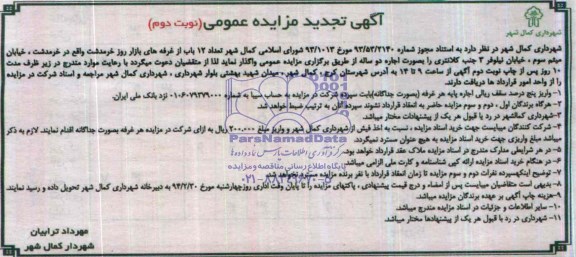 شهرداری کمال شهر
آگهی تجدید مزایده عمومی (نوبت دوم)
شهرداری کمال شهر در نظر دارد به استناد مجوز شماره ۹۳/۵۳/۲۱۴۰ مورخ ۹۳/۱۰/۱۳ شورای اسلامی کمال شهر تعداد ۱۲ باب از غرفه های بازار روز خرمدشت واقع در خرمدشت ، خیابان
میثم سوم ، خیابان نیلوفر ۳ جنب کلانتری را بصورت اجاره دو ساله از طریق برگزاری مزایده عمومی واگذار نماید لذا از متقاضیان دعوت میگردد با رعایت موارد مندرج در زیر ظرف مدت
۱۰ روز پس از چاپ نوبت دوم آگهی از ساعت ۹ تا ۱۴ به آدرس شهرستان کرج ، کمال شهر ، میدان شهید بهشتی بلوار شهرداری ، شهرداری کمال شهر مراجعه و اسناد شرکت در مزایده
را از واحد امور قرارداد ها دریافت دارند.
۱- واریز پنج درصد سقف ریالی اجاره پایه هر غرفه (بصورت جداگانه) بابت سپرده شرکت در مزایده به حساب سیبا به شماره ۰۱۰۶۰۷۹۳۷۹۰۰۰ نزد بانک ملی ایران.
۲- هرگاه برندگان اول ، دوم و سوم مزایده حاضر به انعقاد قرارداد نشوند سپرده آنان به ترتیب ضبط خواهد شد.
۳- شهرداری کمالشهر در رد یا قبول هر یک از پیشنهادات مختار میباشد.
۴- شرکت کنندگان میبایست جهت خرید اسناد مزایده ، نسبت به اخذ فیش از شهرداری کمال شهر و واریز مبلغ ۲۰۰,۰۰۰ ریال به ازای شرکت در مزایده هر غرفه بصورت جداگانه اقدام نمایند. لازم به ذکر
میباشد مبلغ واریزی جهت خرید اسناد مزایده به هیچ عنوان مسترد نمیگردد.
۵- در هر شرایطی مدارک مندرج در اسناد مزایده ملاک عقد قرارداد خواهد بود.
۶- در هنگام خرید اسناد مزایده ارائه کپی شناسنامه و کارت ملی الزامی میباشد.
۷- توضیح اینکه سپرده نفرات دوم و سوم مزایده تا زمان انعقاد قرارداد با نفر برنده مزایده مسترد نخواهد شد.
۸- بدیهی است متقاضیان میبایست پس از امضاء و درج قیمت پیشنهادی ، پاکتهای مزایده را تا پایان وقت اداری روز چهارشنبه مورخ ۹۴/۲/۳۰ به دبیرخانه شهرداری کمال شهر تحویل داده و رسید نمایند.
۹- هزینه چاپ آگهی بر عهده برندگان مزایده میباشد.
۱۰- سایر اطلاعات و جزئیات در اسناد مزایده مندرج میباشد.
۱۱- شهرداری در رد یا قبول هر یک از پیشنهادها مختار میباشد.
مهرداد ترابیان
شهردار کمال شهر
ParsNamadData
پایگاه اطلاع رسانی مناقصه و مزایده
۰۲۱-۸۸۳۴۹۶۷۰-۵